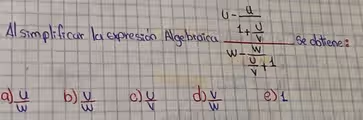 Al simplificar la expresión Algebraica (U - u/(1 + U/V))/(W - W/(U/V + 1)) se obtiene:
a) U/W b) V/W c) U/V d) V/W e) 1